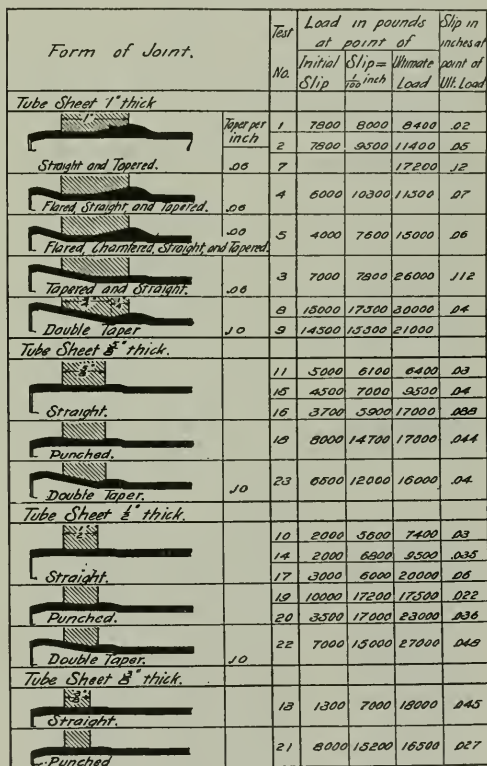 Form of Joint. Test No. Load in pounds at point of Slip in inches at point of Ult. Load
Initial Slip Slip = 1/100 inch Ultimate Load
Tube Sheet 1" thick
1" Taper per inch 1 7800 8000 8400 .02
2 7800 9500 11400 .05
Straight and Tapered. .06 7 17200 .12
Flared, Straight and Tapered. .06 4 6000 10300 11500 .07
Flared, Chamfered, Straight, and Tapered. .06 5 4000 7600 15000 .06
Tapered and Straight. .06 3 7000 7800 26000 .112
8 15000 17500 30000 .04
Double Taper .10 9 14500 15300 21000
Tube Sheet 5/8" thick.
5/8" 11 5000 6100 6400 .03
15 4500 7000 9500 .04
Straight. 16 3700 5900 17000 .088
Punched. 18 8000 14700 17800 .044
Double Taper. .10 23 6500 12000 16000 .04
Tube Sheet 1/2" thick.
1/2" 10 2000 5600 7400 .03
14 2000 6800 9500 .035
Straight. 17 3000 6000 20000 .06
Punched. 19 10000 17200 17500 .022
20 3500 17000 23000 .036
Double Taper. .10 22 7000 15000 27000 .048
Tube Sheet 3/8" thick.
3/8" Straight. 13 1300 7000 18000 .045
Punched 21 8000 15200 16500 .027